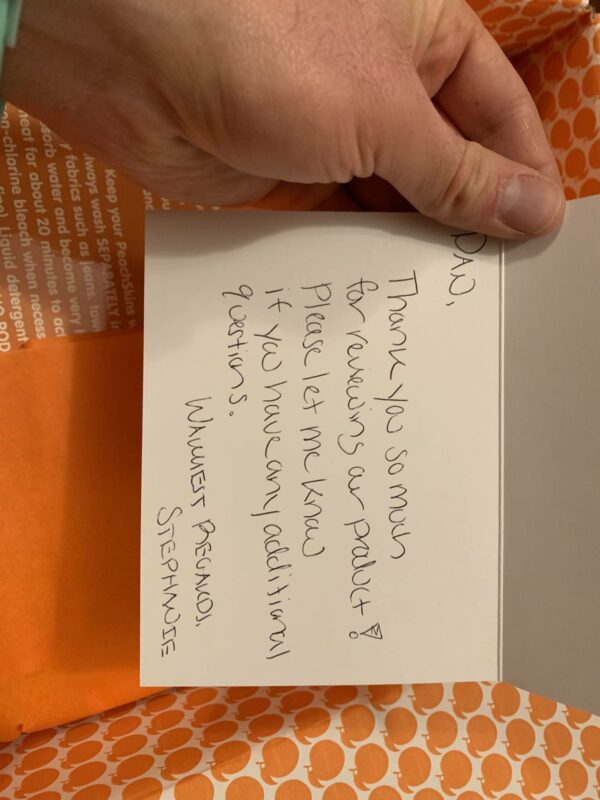 DAN,
Thank you so much
for reviewing our product!
Please let me know
if you have any additional
questions.
WARMEST REGARDS,
STEPHANIE
Keep your PeachSkins
always wash SEPARATELY
fabrics such as jeans,
absorb water and become very
heat for about 20 minutes to
non-chlorine bleach when
Liquid detergent